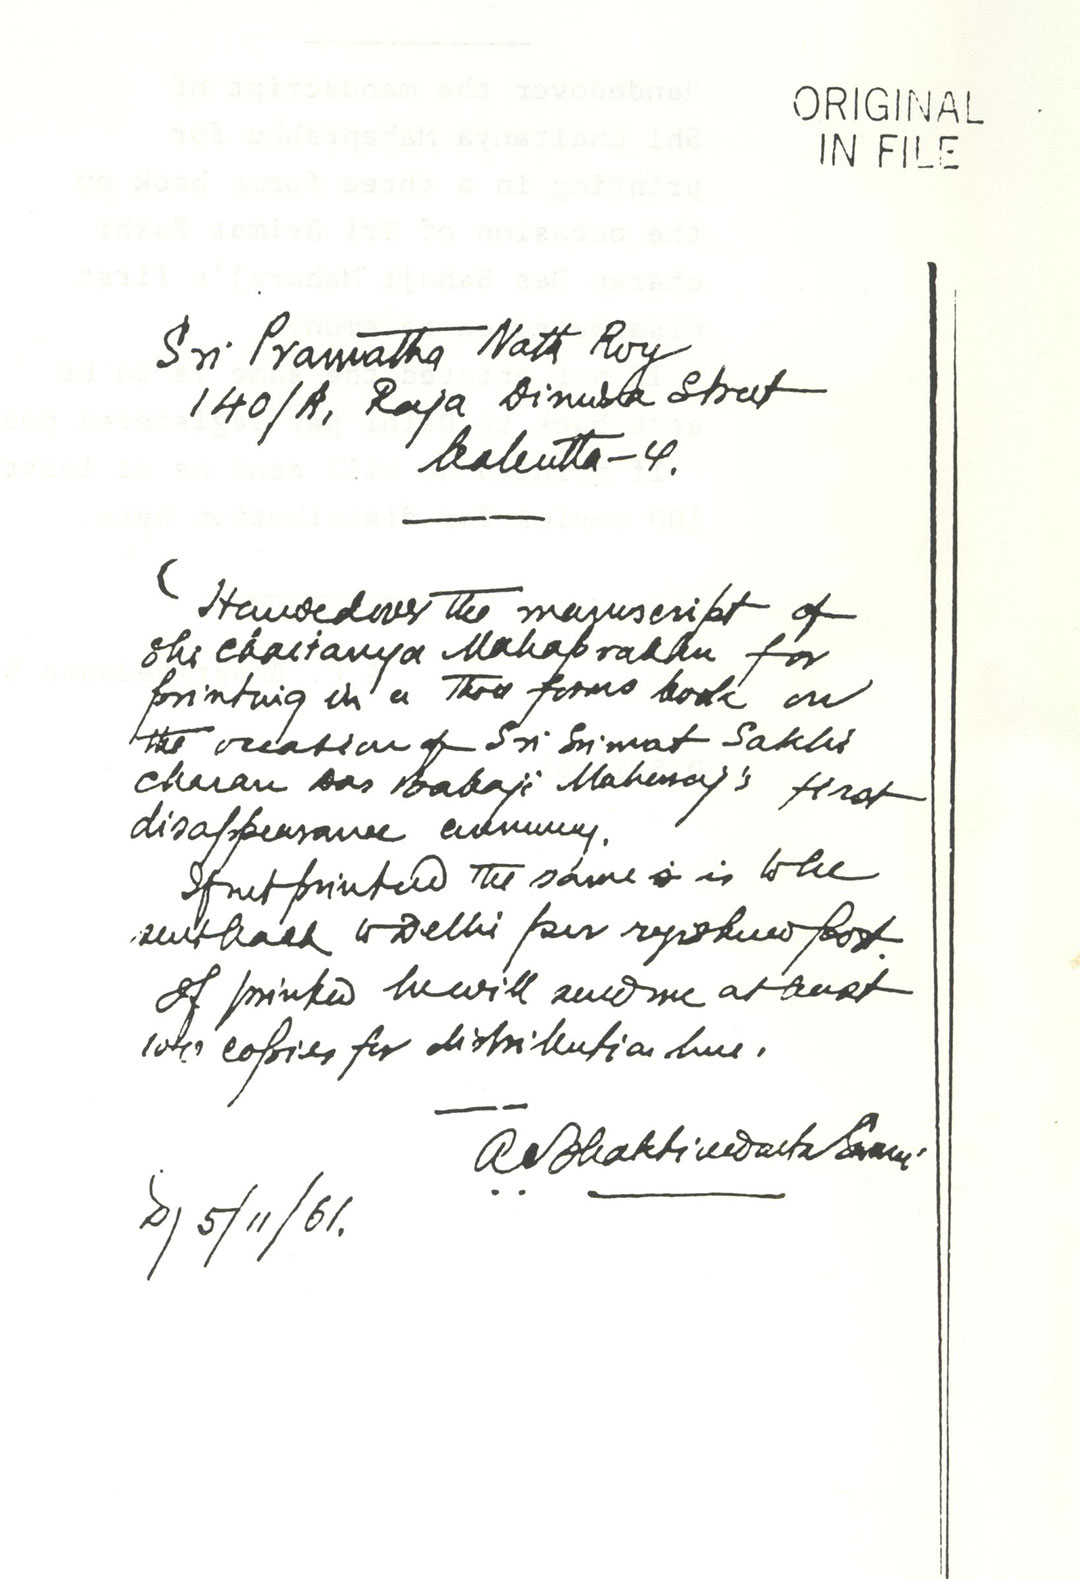 ORIGINAL
IN FILE
Sri Pramatha Nath Roy
140/A, Raja Dinendra Street
Calcutta-4.
Handedover the manuscript of
Shi Chaitanya Mahaprabhu for
printing in a three forms book on
the occasion of Sri Srimat Sakhi
charan Das Babaji Maharaj's first
disappearance
If not printed the same is is to be
sent back to Delhi per registered post.
If printed he will send me at least
100 copies for distribution here.
A.C. Bhaktivedanta Swami
D/ 5/11/61.